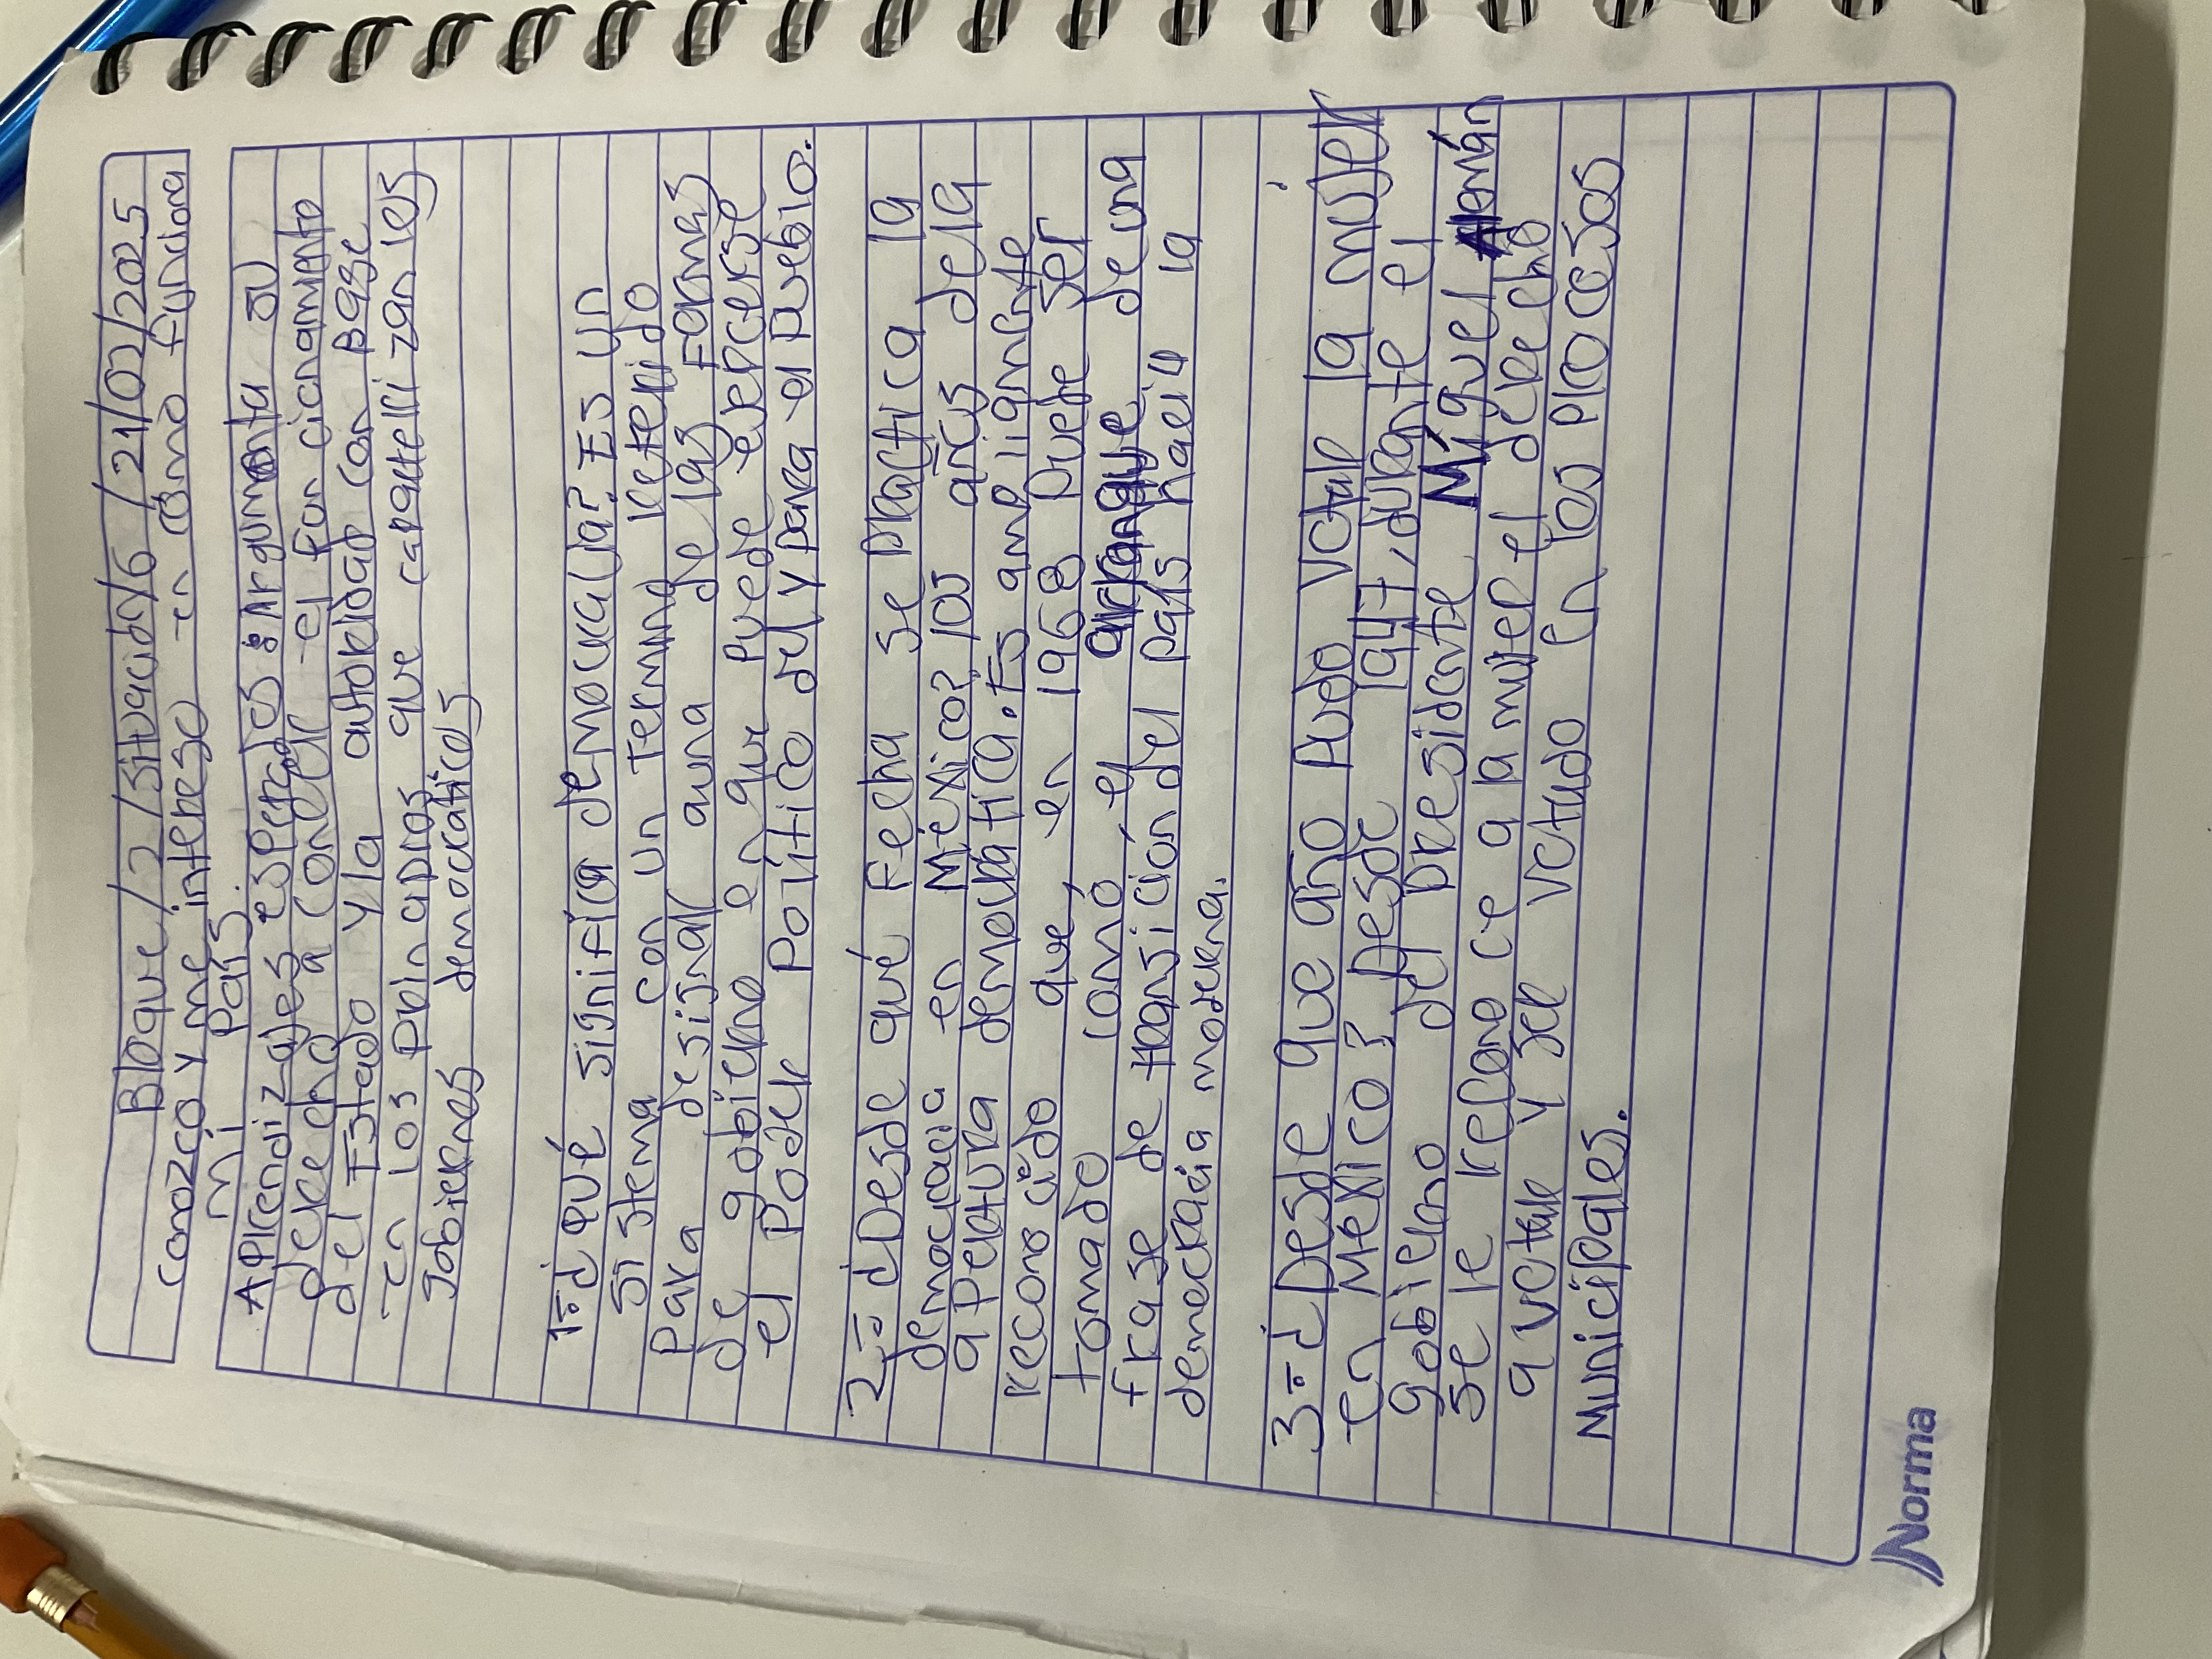 Bloque/2/Situación/6/21/02/2025
conozco y me intereso en cómo funciona
mi País.
Aprendizajes esperados: Argumenta su
derecho a conocer el funcionamiento
del Estado y la autoridad con base
en los principios que caracterizan les
gobiernos democraticos
1=¿qué significa democracia? Es un
sistema con un Termino referido
Para designar auna de las Formas
de gobierno en que puede ejercerse
el Poder Político del y para el pueblo.
2=¿Desde qué Fecha se practica la
democracia en México? los años dela
apertura democratica. Es ampliamente
reconocido que, en 1968 puede ser
tomado como el arranque de una
frase de transición del país hacia la
democracia moderna.
3=¿Desde que año pudo votar la mujer
en México? Desde 1947, durante el
gobierno del presidente Miguel Alemán
se le reconoce a la mujer el derecho
a votar y ser votado en los procesos
Municipales.
Norma